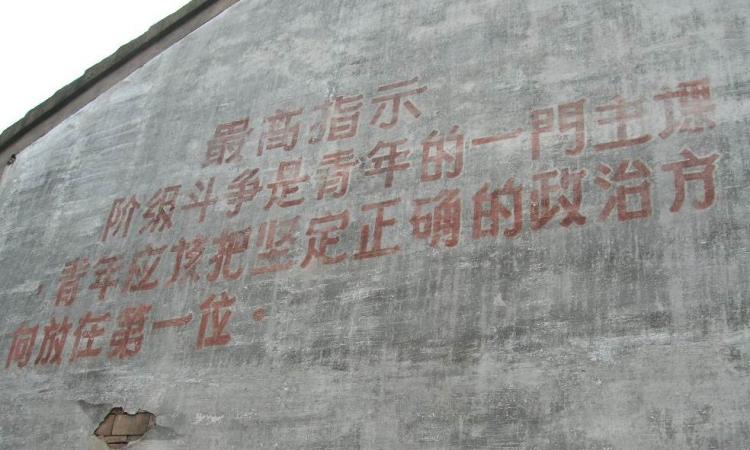 最高指示
阶级斗争是青年的一門主课
，青年应该把坚定正确的政治方
向放在第一位。